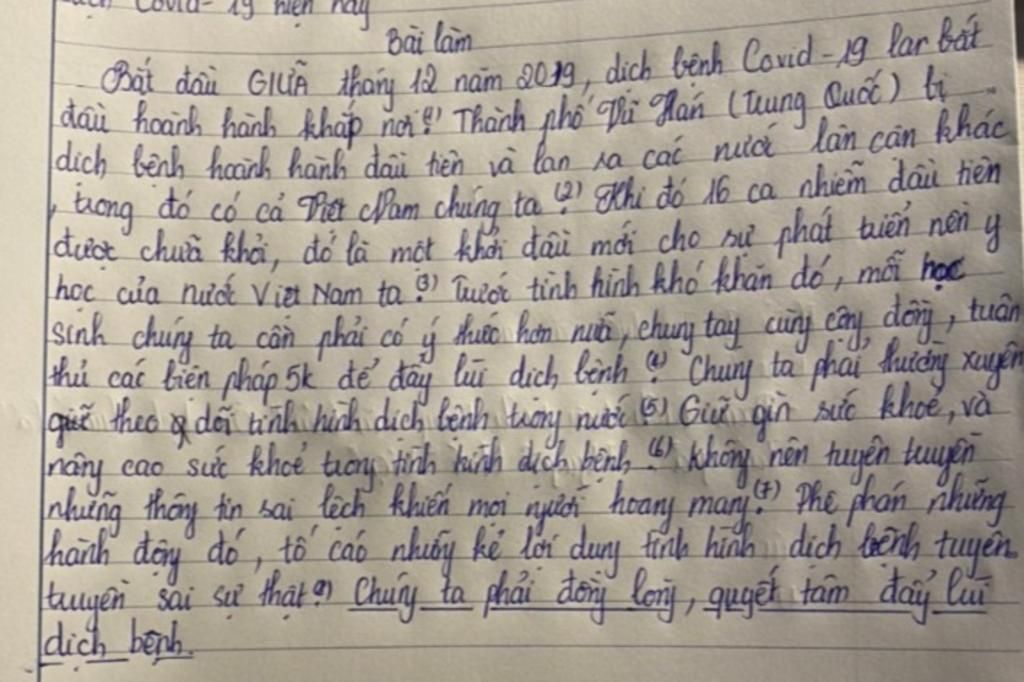 Covid-19 hiện nay
Bài làm
Bắt đầu GIỮA tháng 12 năm 2019, dịch bệnh Covid-19 lar bắt
đầu hoành hành khắp nơi.(1) Thành phố Vũ Hán (Trung Quốc) bị
dịch bệnh hoành hành đầu tiên và lan ra các nước lân cận khác
, trong đó có cả Việt Nam chúng ta.(2) Khi đó 16 ca nhiễm đầu tiên
được chữa khỏi, đó là một khởi đầu mới cho sự phát triển nền y
học của nước Việt Nam ta.(3) Trước tình hình khó khăn đó, mỗi học
sinh chúng ta cần phải có ý thức hơn nữa, chung tay cùng cộng đồng, tuân
thủ các biện pháp 5k để đẩy lùi dịch bệnh.(4) Chúng ta phải thường xuyên
theo dõi tình hình dịch bệnh trong nước.(5) Giữ gìn sức khoẻ, và
nâng cao sức khoẻ trong tình hình dịch bệnh.(6) Không nên tuyên truyền
những thông tin sai lệch khiến mọi người hoang mang.(7) Phê phán những
hành động đó, tố cáo những kẻ lợi dụng tình hình dịch bệnh tuyên
truyền sai sự thật. Chúng ta phải đồng lòng, quyết tâm đẩy lùi
dịch bệnh.